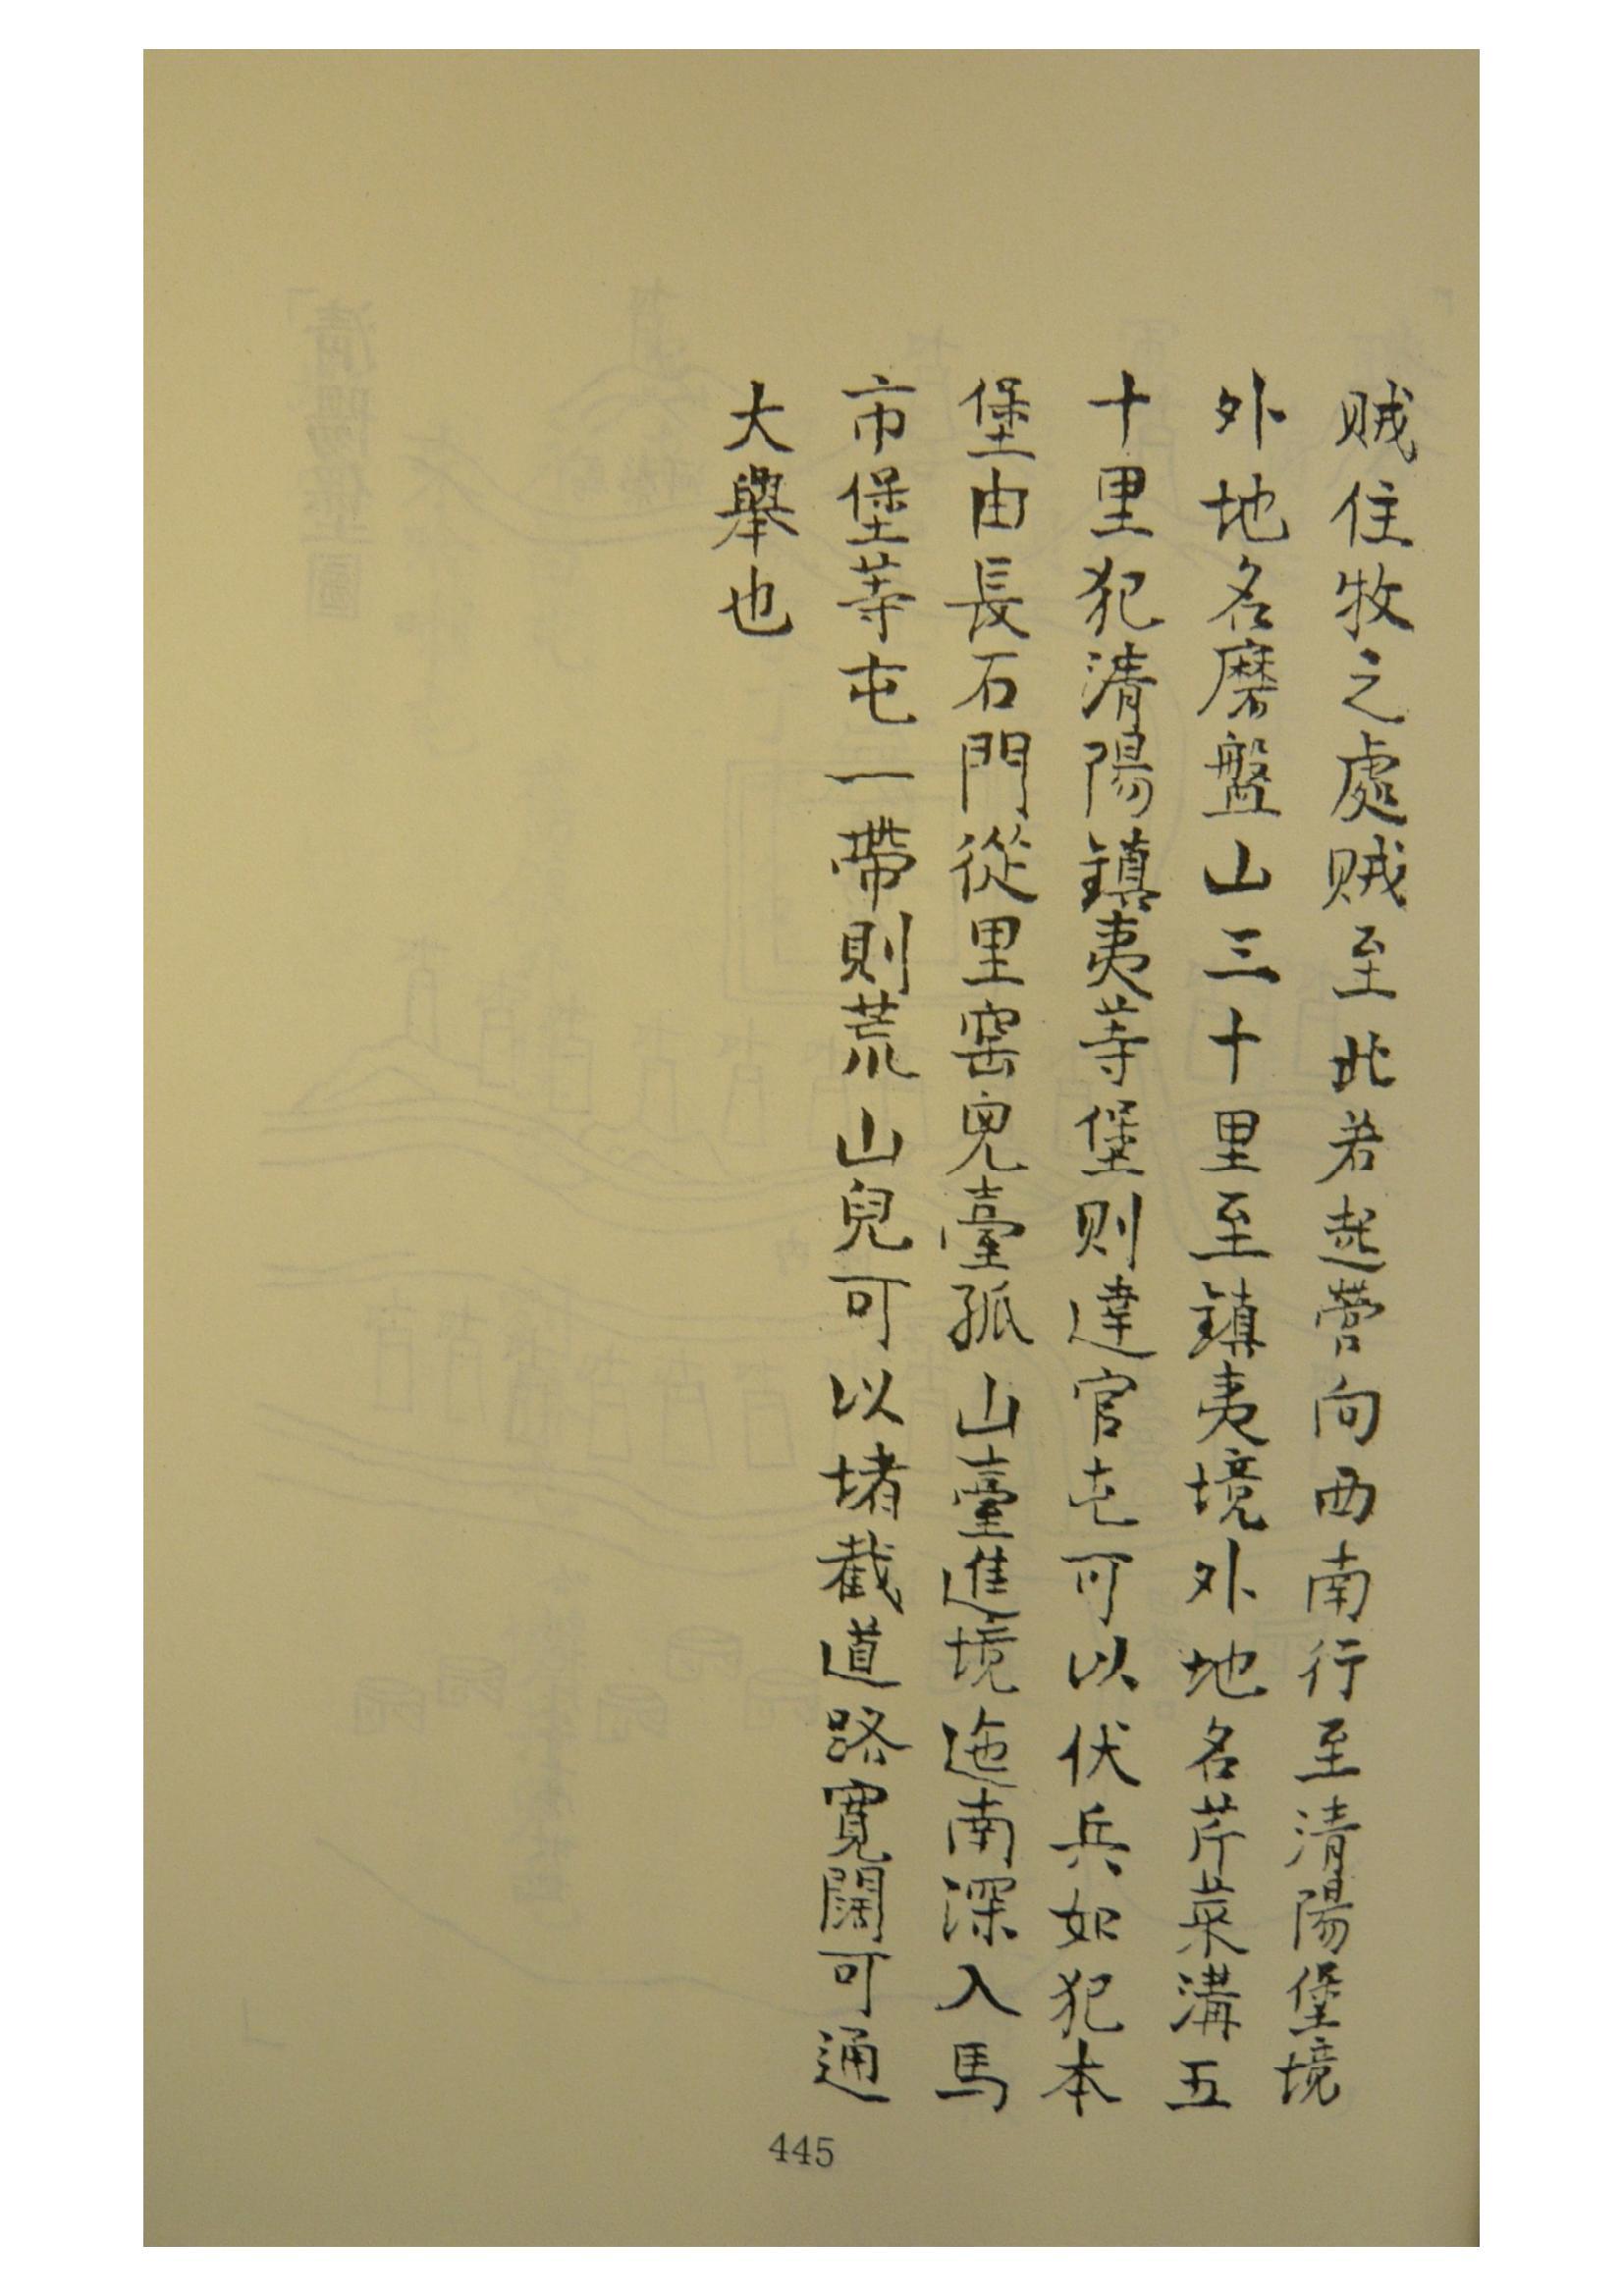 贼住牧之處贼至此若起營向西南行至清陽堡境
外地名磨盤山三十里至鎮夷境外地名芹菜溝五
十里犯清陽鎮夷荨堡则達官屯可以伏兵如犯本
堡由長石門從里窑兒臺孤山臺進境迤南深入馬
市堡荨屯一帶則荒山兒可以堵截道路寬闊可通
大舉也
445